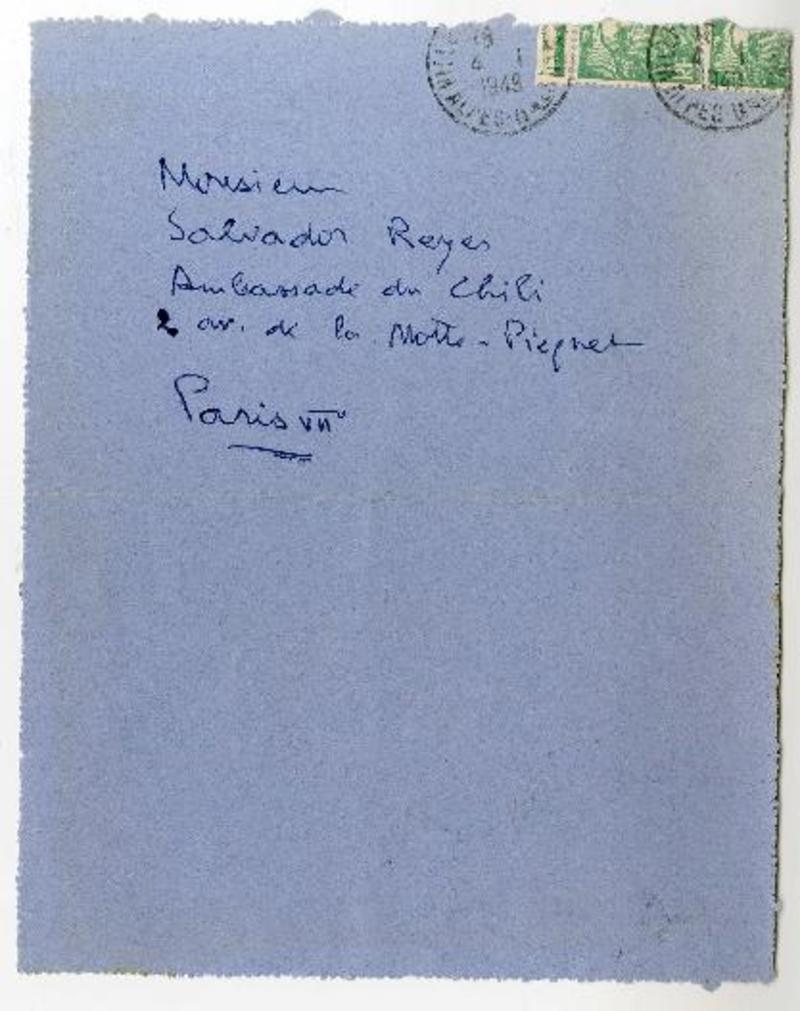 18
4 1
1949
Monsieur
Salvador Reyes
Ambassade du Chili
2 av. de la Motte-Picquet
Paris VIIe